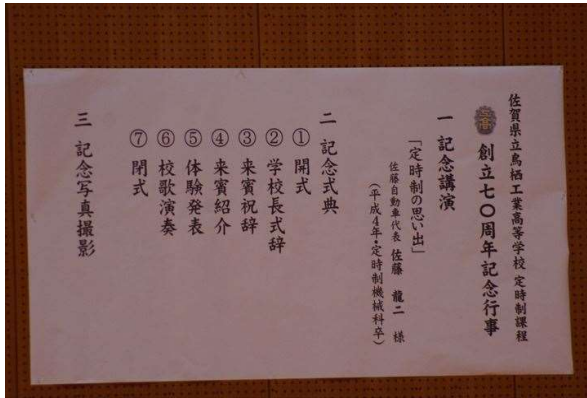 佐賀県立鳥栖工業高等学校 定時制課程
創立七〇周年記念行事
一 記念講演
「定時制の思い出」
佐藤自動車代表 佐藤 龍二 様
(平成4年・定時制機械科卒)
二 記念式典
①開式
②学校長式辞
③来賓祝辞
④来賓紹介
⑤体験発表
⑥校歌演奏
⑦閉式
三 記念写真撮影